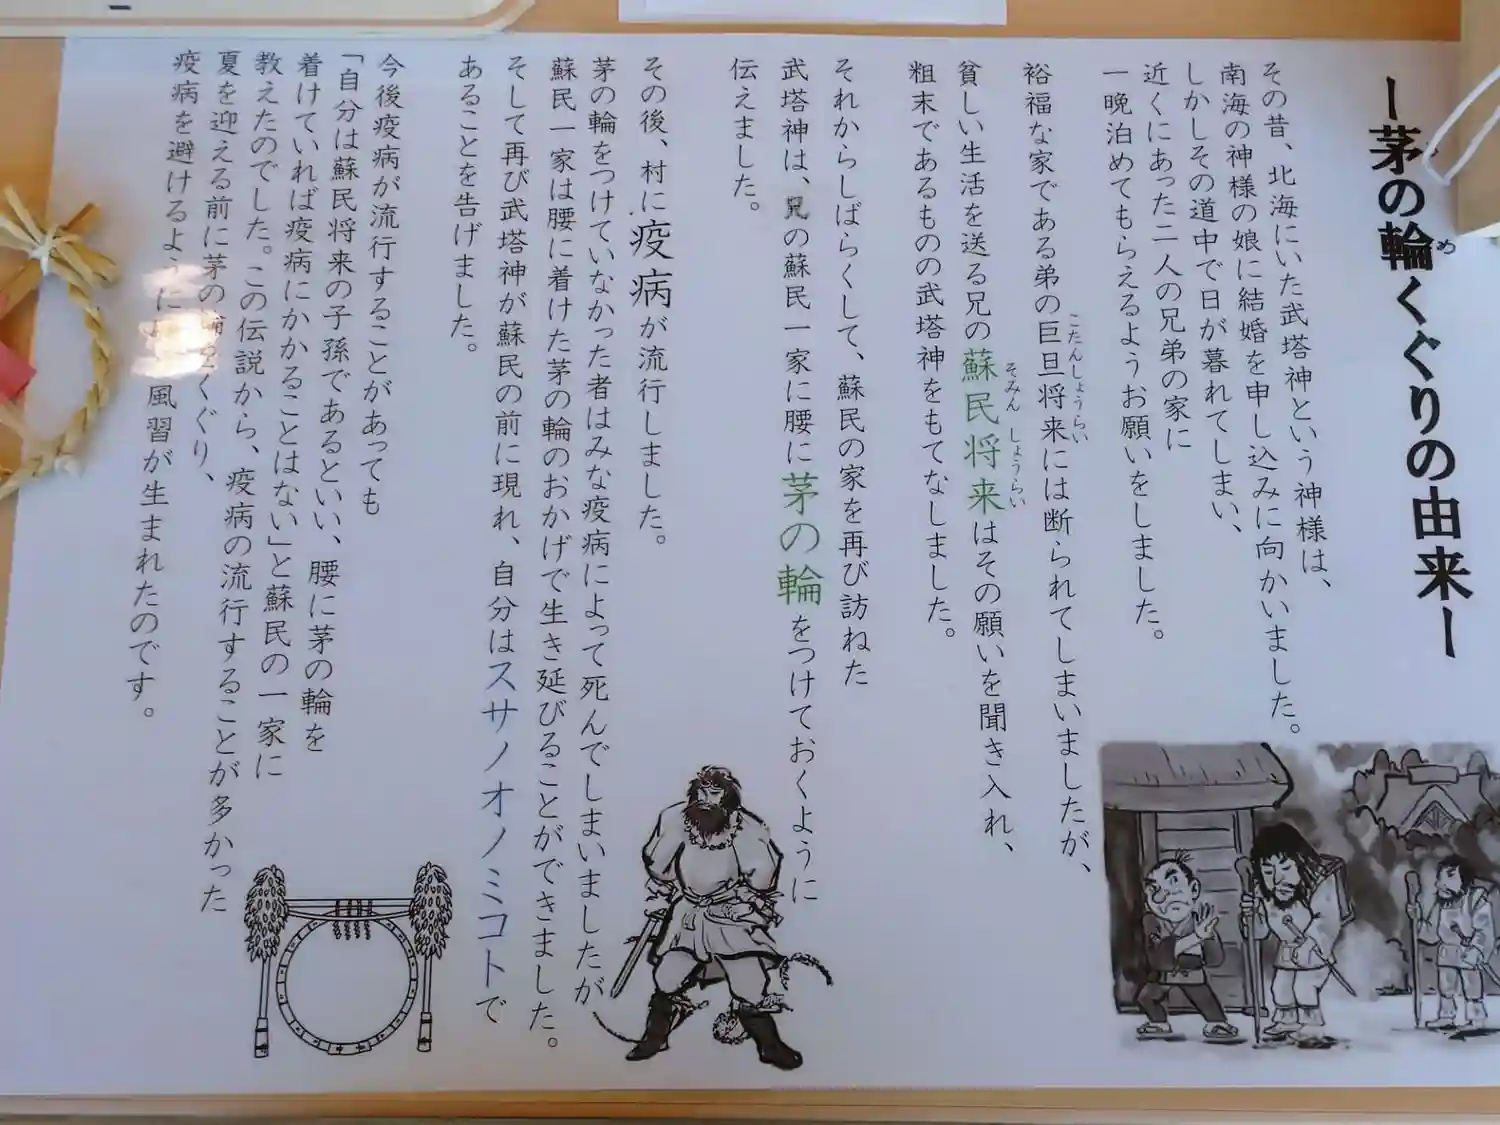 ー茅の輪くぐりの由来ー
め
その昔、北海にいた武塔神という神様は、
南海の神様の娘に結婚を申し込みに向かいました。
しかしその道中で日が暮れてしまい、
近くにあった二人の兄弟の家に
一晩泊めてもらえるようお願いをしました。
裕福な家である弟の巨旦将来には断られてしまいましたが、
こたんしょうらい
貧しい生活を送る兄の蘇民将来はその願いを聞き入れ、
そみん しょうらい
粗末であるものの武塔神をもてなしました。
それからしばらくして、蘇民の家を再び訪ねた
武塔神は、兄の蘇民一家に腰に茅の輪をつけておくように
伝えました。
その後、村に疫病が流行しました。
茅の輪をつけていなかった者はみな疫病によって死んでしまいましたが
蘇民一家は腰に着けた茅の輪のおかげで生き延びることができました。
そして再び武塔神が蘇民の前に現れ、自分はスサノオノミコトで
あることを告げました。
今後疫病が流行することがあっても
「自分は蘇民将来の子孫であるといい、腰に茅の輪を
着けていれば疫病にかかることはない」と蘇民の一家に
教えたのでした。この伝説から、疫病の流行することが多かった
夏を迎える前に茅の輪をくぐり、
疫病を避けるように 風習が生まれたのです。